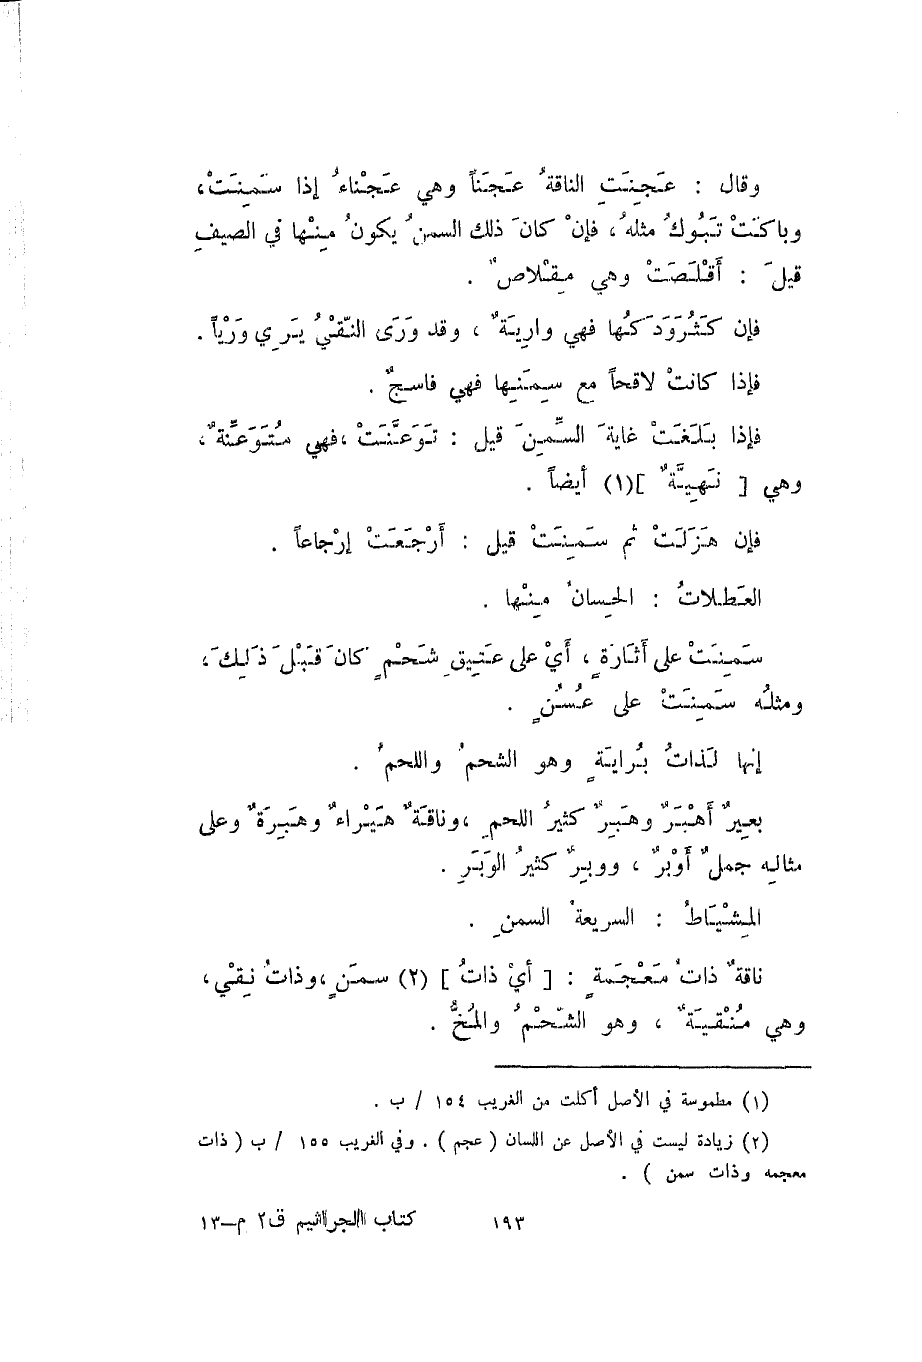 وقال : عَجِنَتِ الناقةُ عَجَناً وهي عَجْناءُ إذا سَمِنَتْ،
وباكَتْ تَبُوكُ مثلهُ، فإنْ كانَ ذلك السمنُ يكونُ مِنْها في الصيفِ
قيلَ : أَقْلَصَتْ وهي مِقْلاصٌ .
فإن كَثُرَ وَدَكُها فهي واريَةٌ ، وقد وَرَى النّقْيُ يَرِي وَرْياً .
فإذا كانتْ لاقحاً مع سِمَنِها فهي فاسجٌ .
فإذا بَلَغَتْ غايةَ السِّمَنِ قيل : تَوَعَّنَتْ، فهي مُتَوَعِّنَةٌ،
وهي [ نَهِيَّةٌ ](١) أيضاً .
فإن هَزَلَتْ ثم سَمِنَتْ قيل : أَرْجَعَتْ إرْجاعاً .
العَطِلاتُ : الحِسانُ مِنْها .
سَمِنَتْ على أَثَارَةٍ ، أَيْ على عَتِيقِ شَحْمٍ كانَ قَبْلَ ذَلِكَ،
ومثلُه سَمِنَتْ على عُسُنٍ .
إنها لَذاتُ بُرايَةٍ وهو الشحمُ واللحمُ .
بعيرٌ أَهْبَرٌ وهَبِرٌ كثيرُ اللحمِ ، وناقَةٌ هَبْراءٌ وهَبِرَةٌ وعلى
مثالِه جملٌ أَوْبرٌ ، ووبِرٌ كثيرُ الوَبَرِ .
المِشْيَاطُ : السريعةُ السمنِ .
ناقةٌ ذاتُ مَعْجَمةٍ : [ أيْ ذاتُ ] (٢) سمَنٍ ، وذاتُ نِقْيٍ،
وهي مُنْقِيَةٌ ، وهو الشّحْمُ والمُخُّ .
(١) مطموسة في الأصل أكلت من الغريب ١٥٤ / ب .
(٢) زيادة ليست في الأصل عن اللسان ( عجم ) . وفي الغريب ١٥٥ / ب ( ذات
معجمه وذات سمن ) .
١٩٣ كتاب الجراثيم ق٢ م–١٣